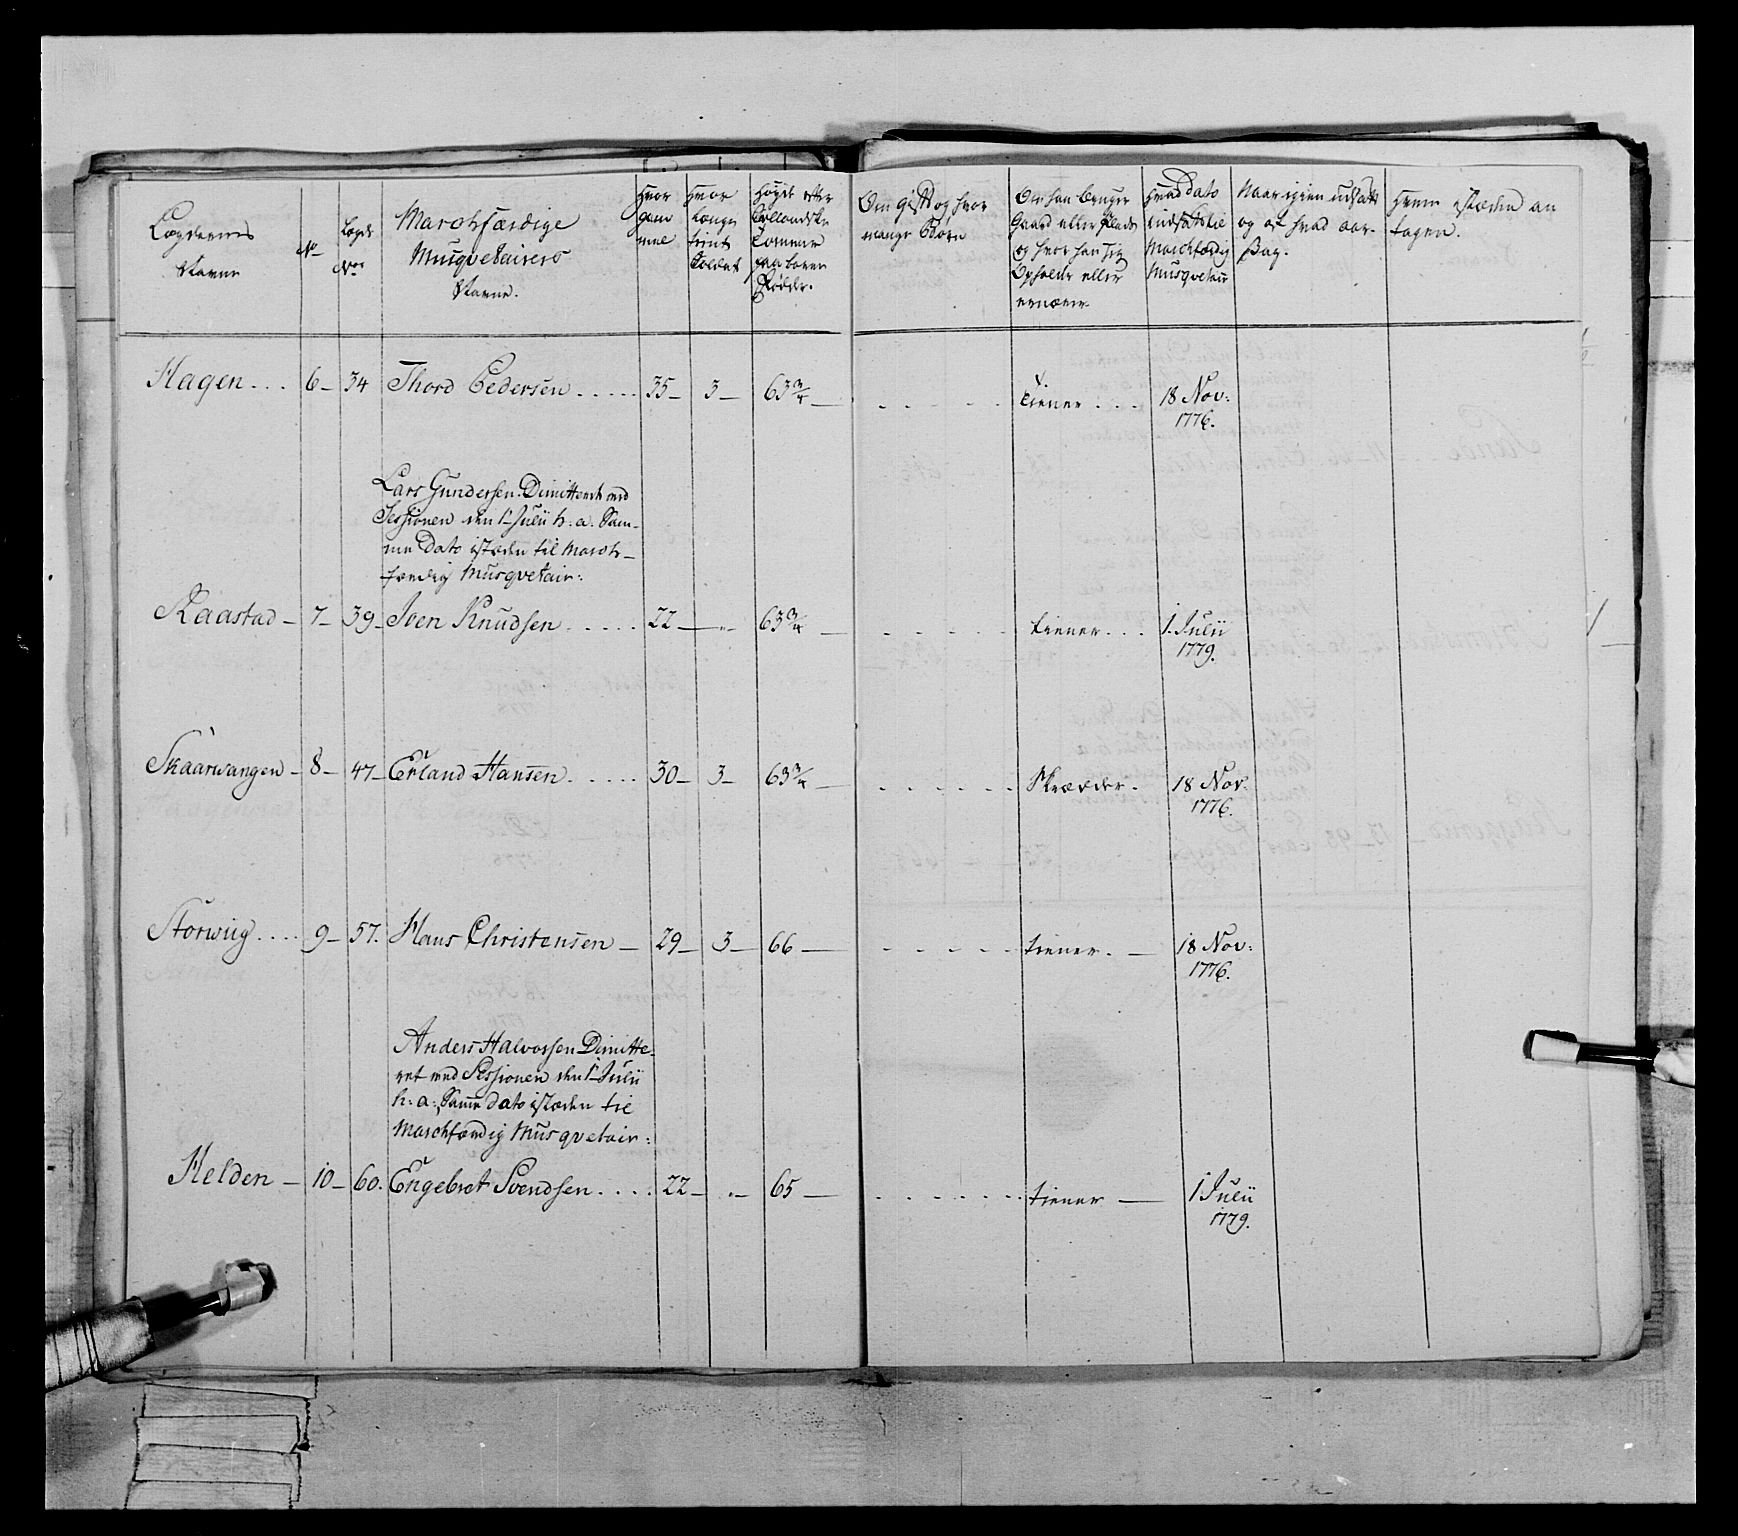 Lægdernes
Navne
No
Lægds
Noer
Marchfærdige
Musqvetairers
Navne.
Hvor
gam
mel
Hvor
længe
tient
Soldat
Høyde efter
Sellandske
Tommer
paa bare
Fødder.
Om gift og hvor
mange Børn
Om han bruger
Gaard eller Plads
og hvor han sig
Opholder eller
ernærer
Hvad dato
indsat til
Marchfærdig
Musqvetair
Naar igien udsat
og af hvad aar-
sag.
Hvem isteden an
tagen.
Hagen... 6- 34 Thord Pedersen..... 35- 3- 63 3/4 - tiener... 18 Nov:
1776.
Lars Gundersen Dimitteret ved
Sessionen den 1te Julii h: a: Sam-
me Dato isteden til March-
færdig Musqvetair:
Raastad- 7- 39- Iven Knudsen..... 22- „- 63 3/4 - tiener... 1. Julii
1779.
Skaarwangen- 8- 47- Erland Hansen..... 30- 3- 63 3/4 - Skrædder. 18 Nov.
1776.
Storwiig.... 9- 57. Hans Christensen- 29- 3- 66- tiener.- 18 Nov:
1776.
Anders Halvorsen Dimitte-
ret ved Sessionen den 1te Julii
h: a: Samme dato isteden til
Marchfærdig Musqvetair:
Helden- 10- 60. Engebret Svendsen.... 22- „- 65- tiener- 1 Julii
1779.